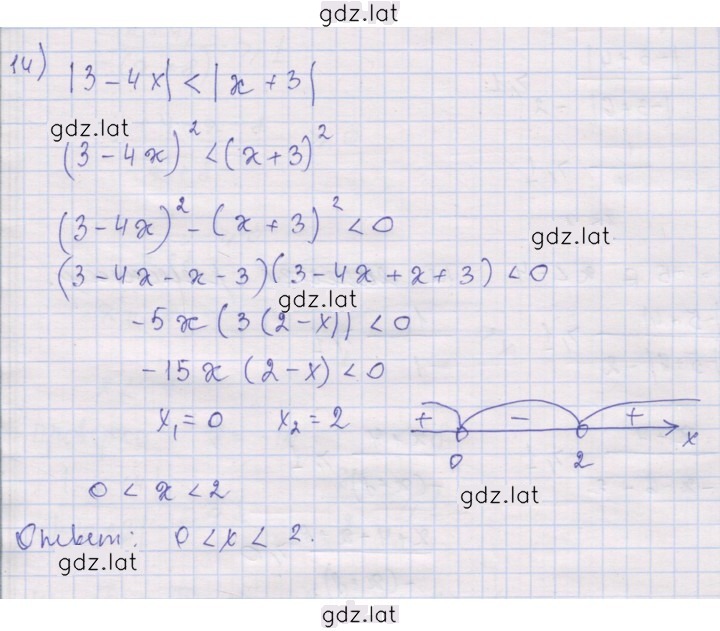 gdz.lat
14) |3 - 4x| < |x + 3|
gdz.lat
(3 - 4x)² < (x + 3)²
(3 - 4x)² - (x + 3)² < 0
gdz.lat
(3 - 4x - x - 3)(3 - 4x + x + 3) < 0
gdz.lat
-5x (3 (2 - x)) < 0
-15x (2 - x) < 0
x₁ = 0 x₂ = 2 + - + x
0 2
0 < x < 2
gdz.lat
Ответ: 0 < x < 2.
gdz.lat
gdz.lat